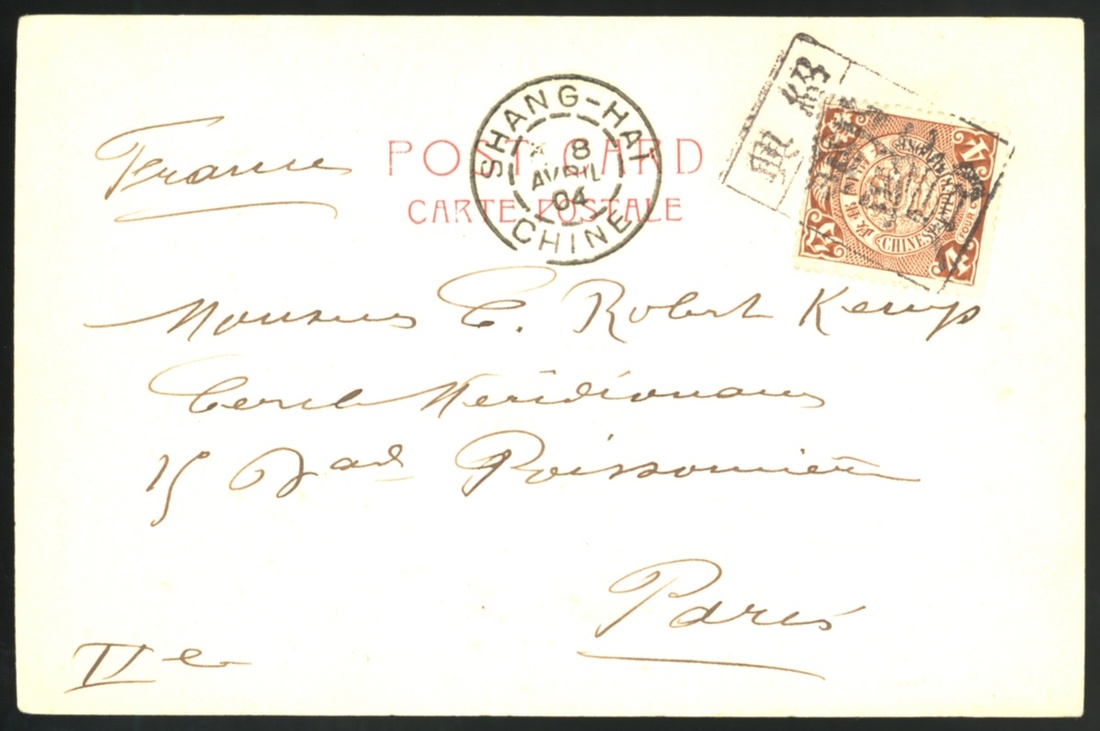 France
POST CARD
CARTE POSTALE
SHANG-HAI
8
AVRIL
04
CHINE
4
4
FOUR
4
4
Monsieur E. Robert Kemp
Cercle Méridionaux
15 Bard Poissonnière
Paris
IIe